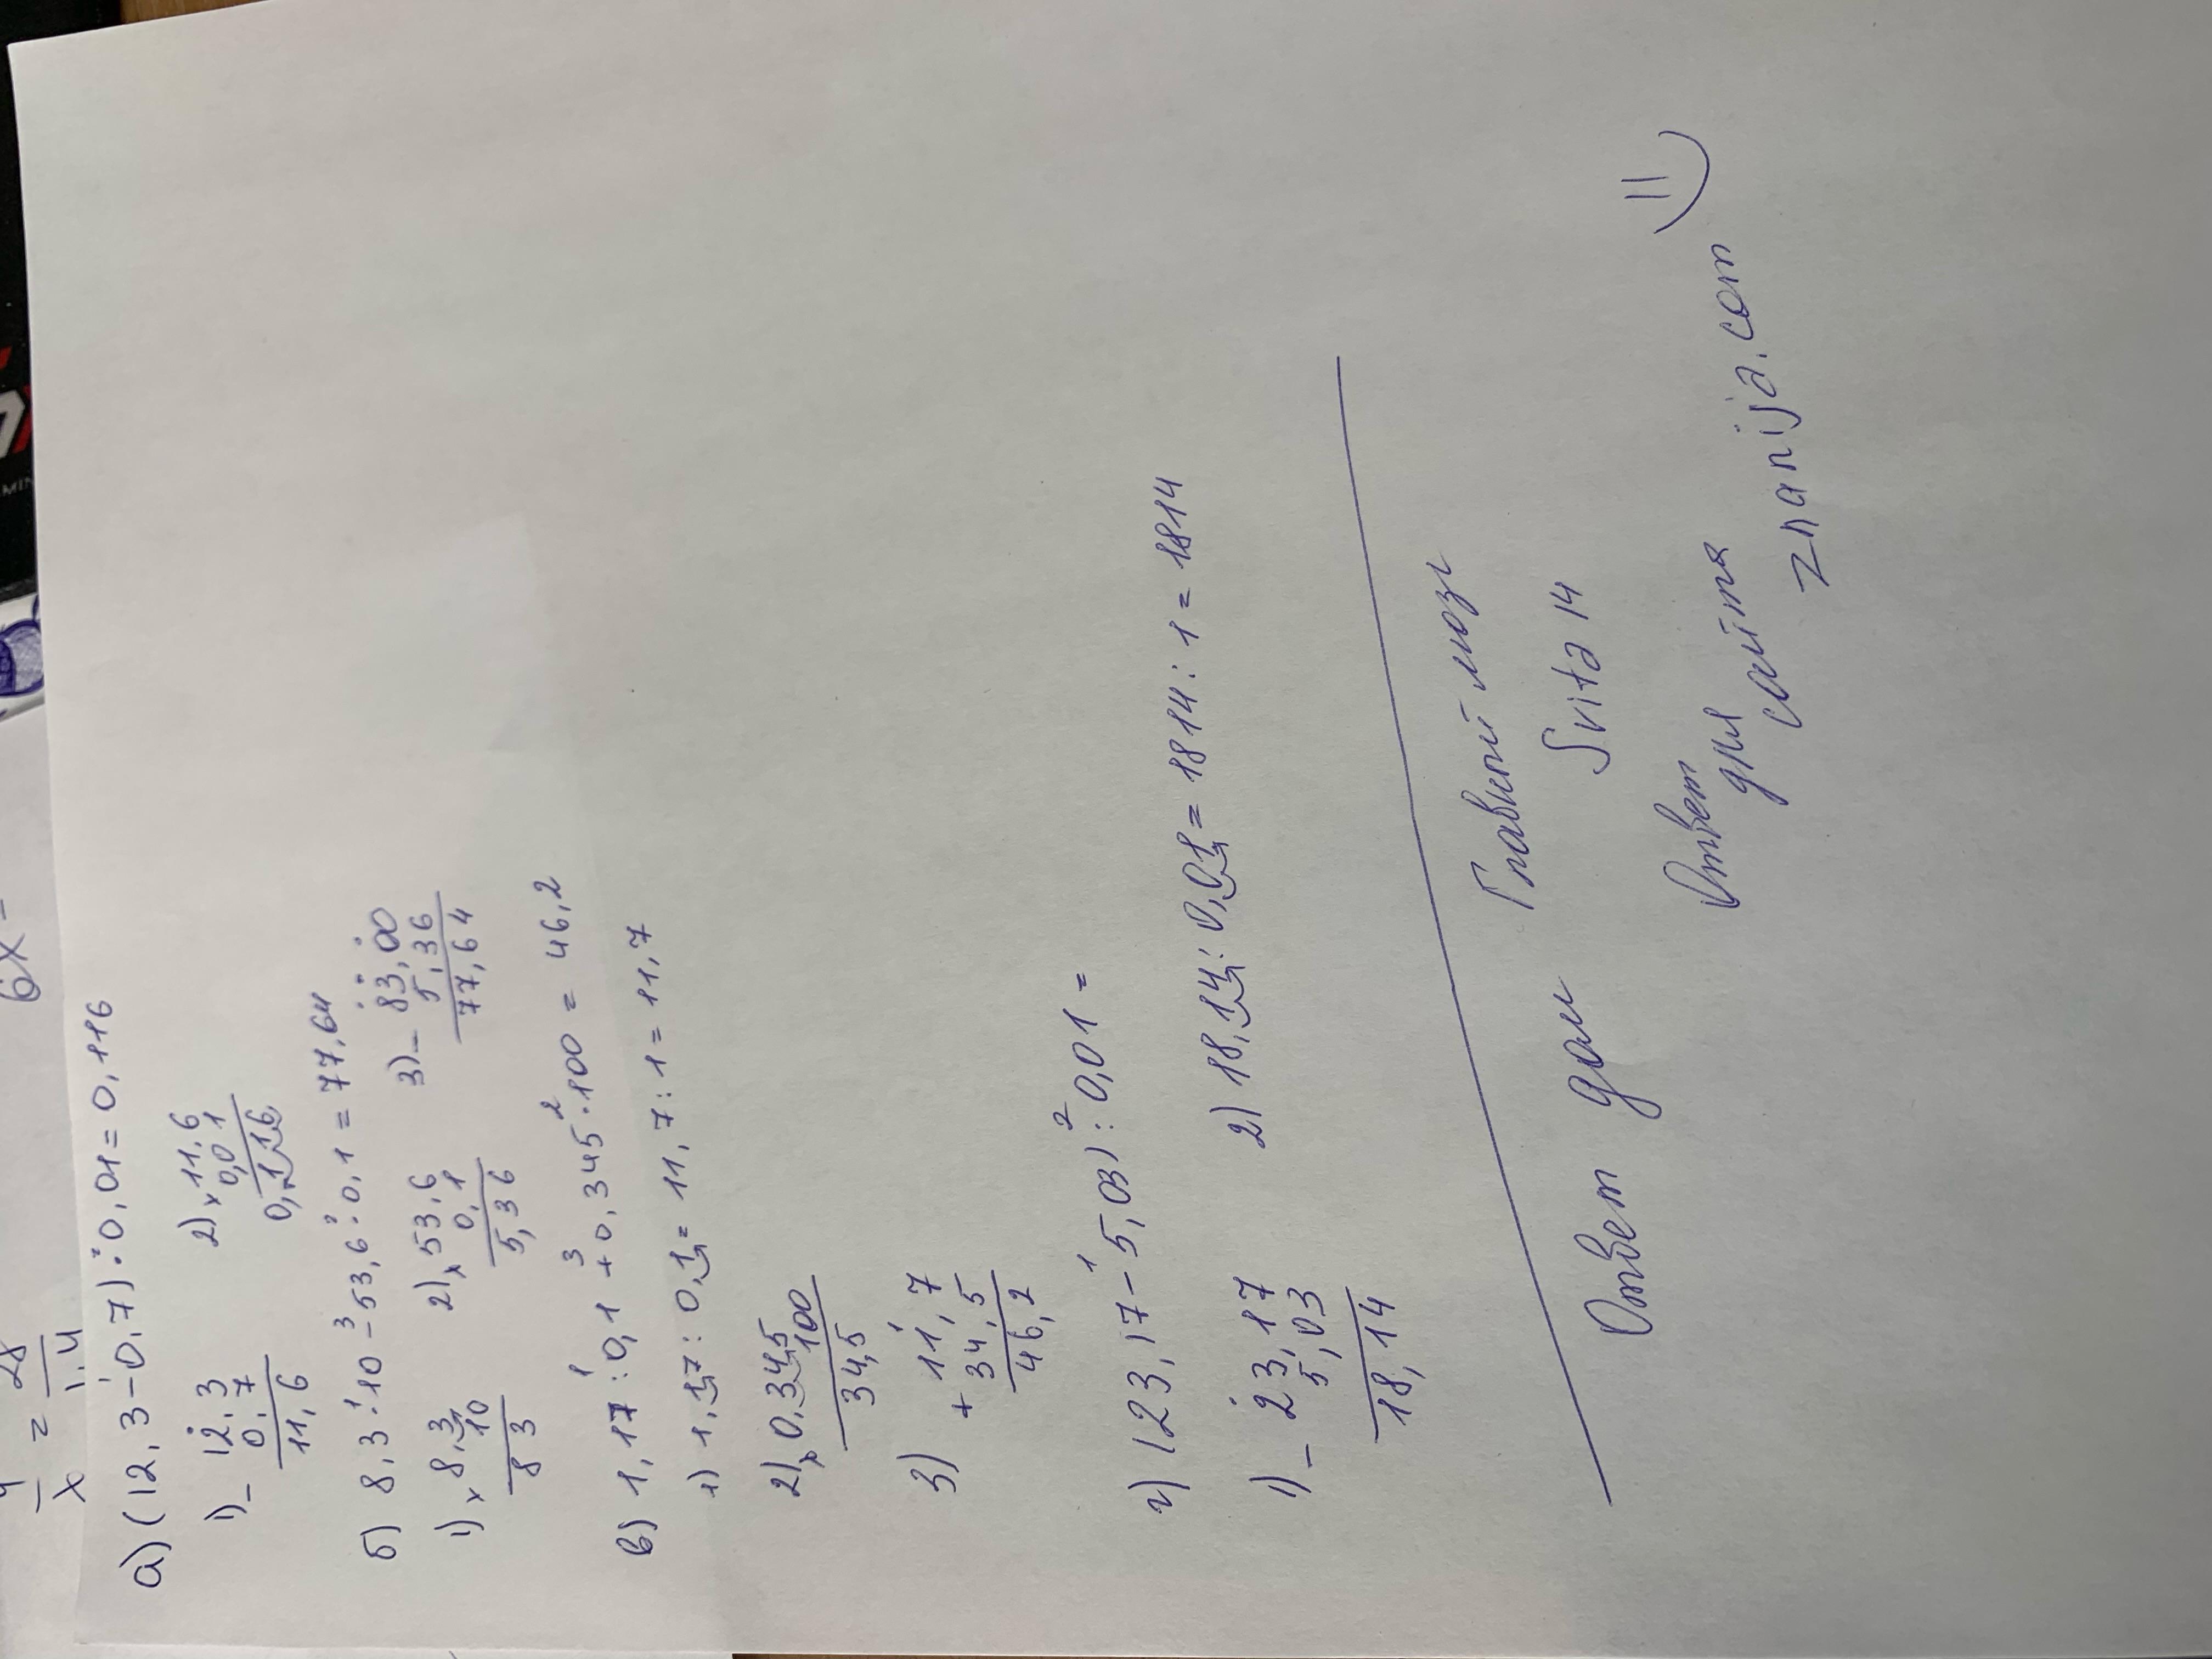 6x -
x = 28
1.4
а) (12,3 - 0,7) · 0,01 = 0,116
1) - 12,3 2) × 11,6
0,7 0,01
11,6 0,116
б) 8,3 · 10 - 53,6 · 0,1 = 77,64
1) × 8,3 2) × 53,6 3) - 83,00
10 0,1 5,36
83 5,36 77,64
в) 1,17 : 0,1 + 0,345 · 100 = 46,2
1) 1,17 : 0,1 = 11,7 : 1 = 11,7
2) × 0,345
100
34,5
3) + 11,7
34,5
46,2
г) (23,17 - 5,03) : 0,01 =
1) - 23,17 2) 18,14 : 0,01 = 1814 : 1 = 1814
5,03
18,14
Ответ дал Главный мозг
Svita14
Ответ для сайта
znanija.com =)